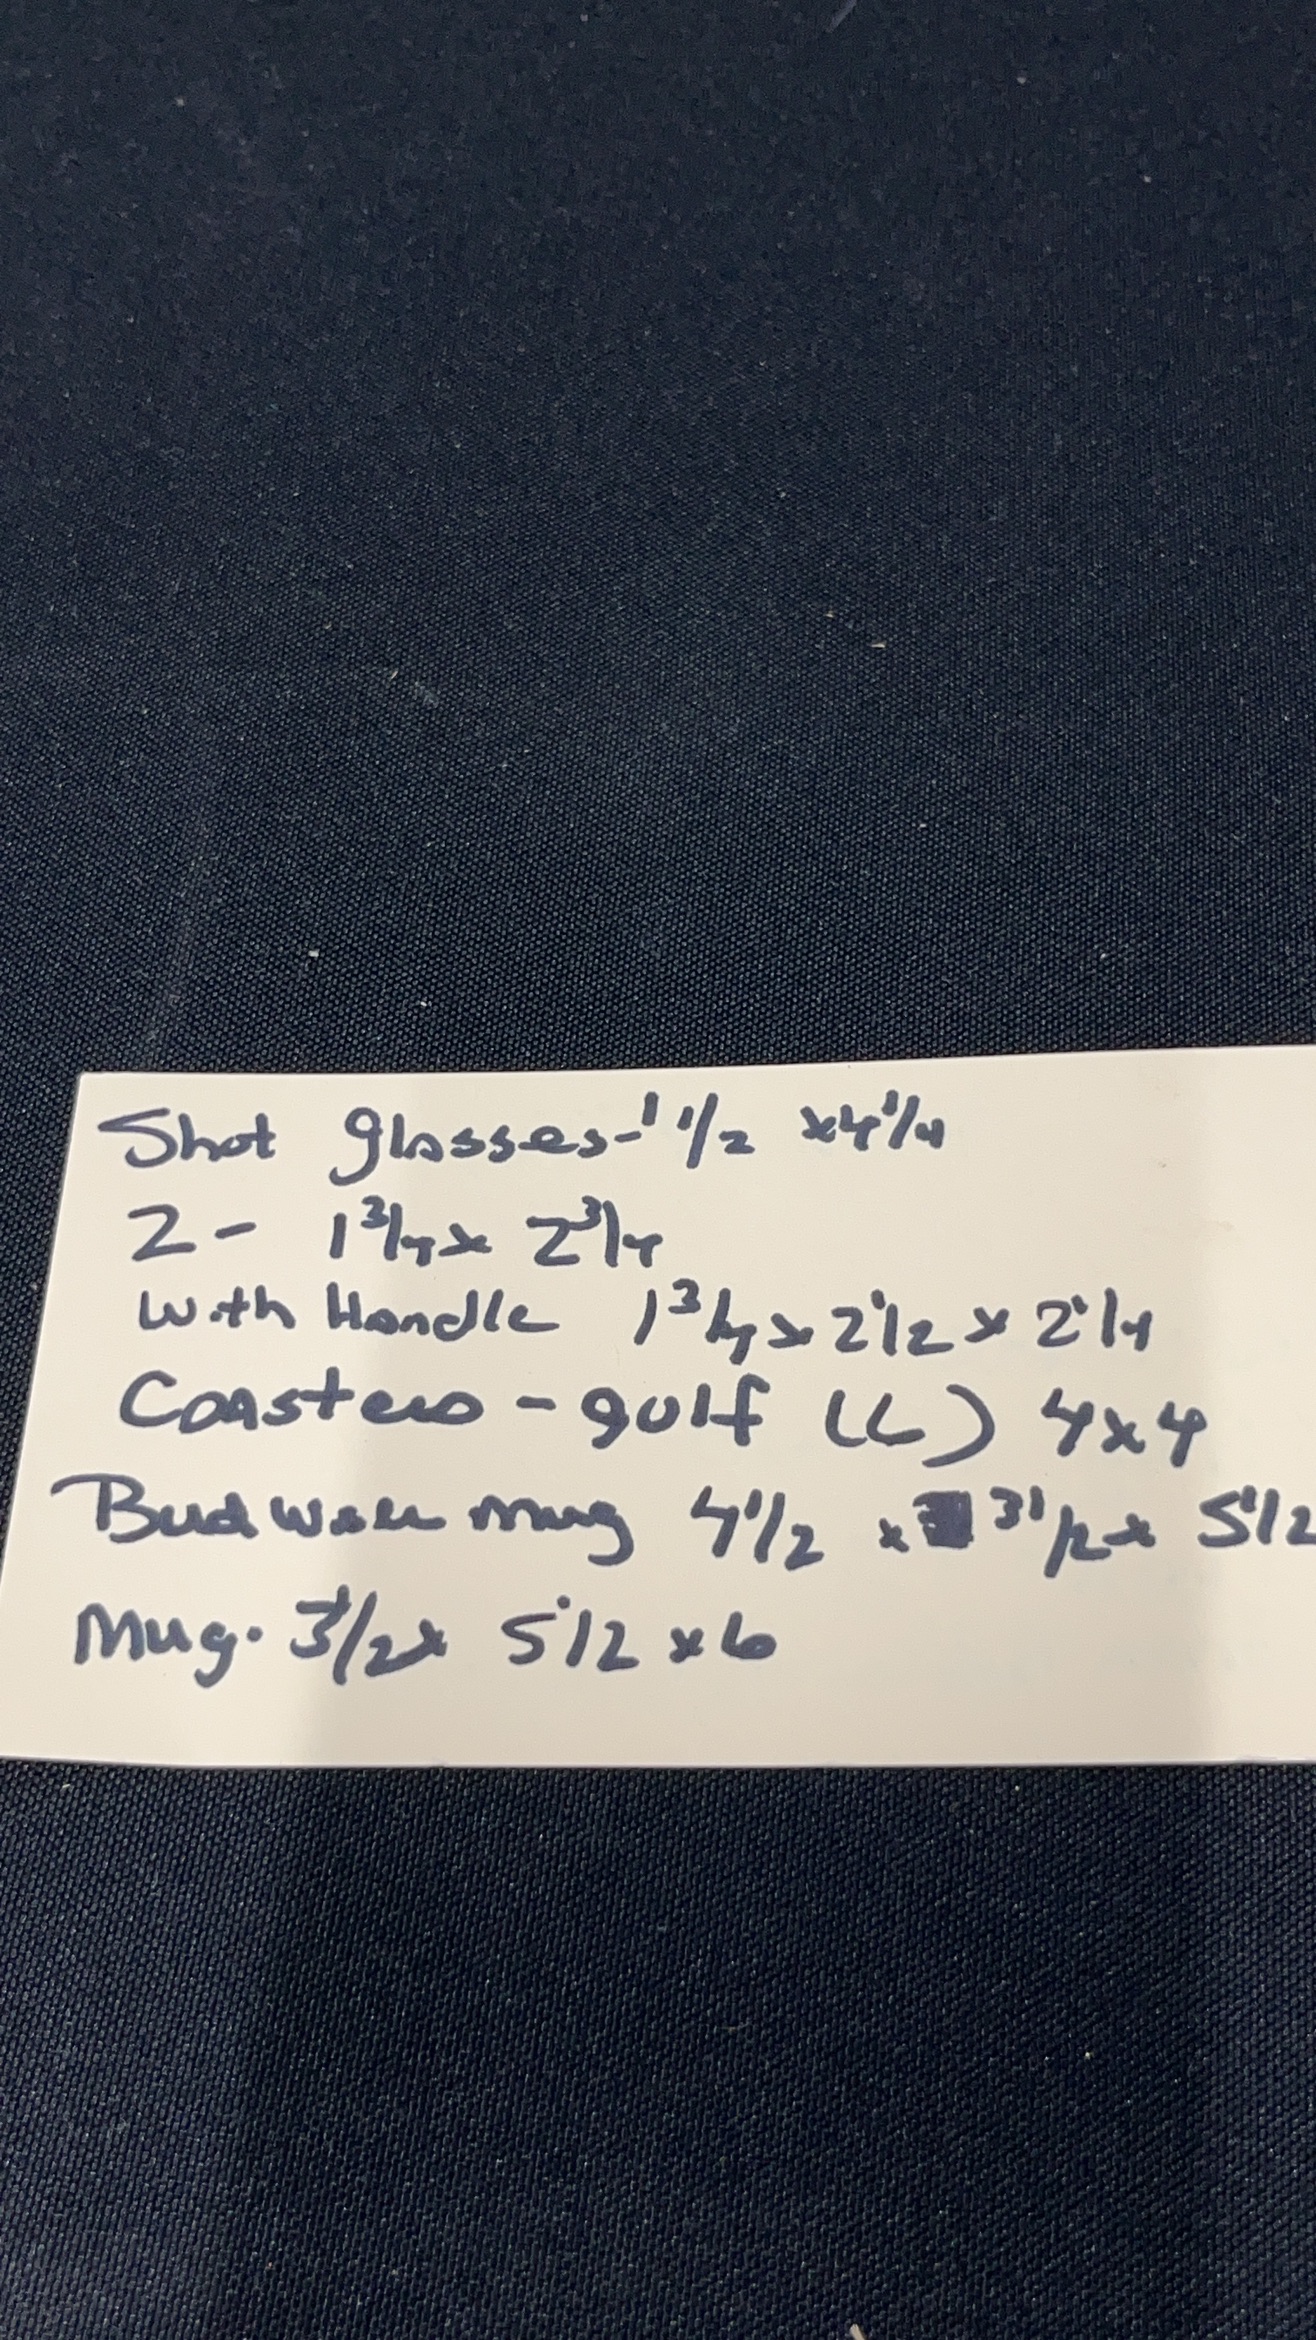 Shot glasses - 1 1/2 x 4 1/4
2 - 1 3/4 x 2 3/4
with Handle 1 3/4 x 2 1/2 x 2 1/4
Coasters - golf (6) 4x4
Budweiser mug 4 1/2 x 3 1/2 x 5 1/2
Mug. 3 1/2 x 5 1/2 x 6